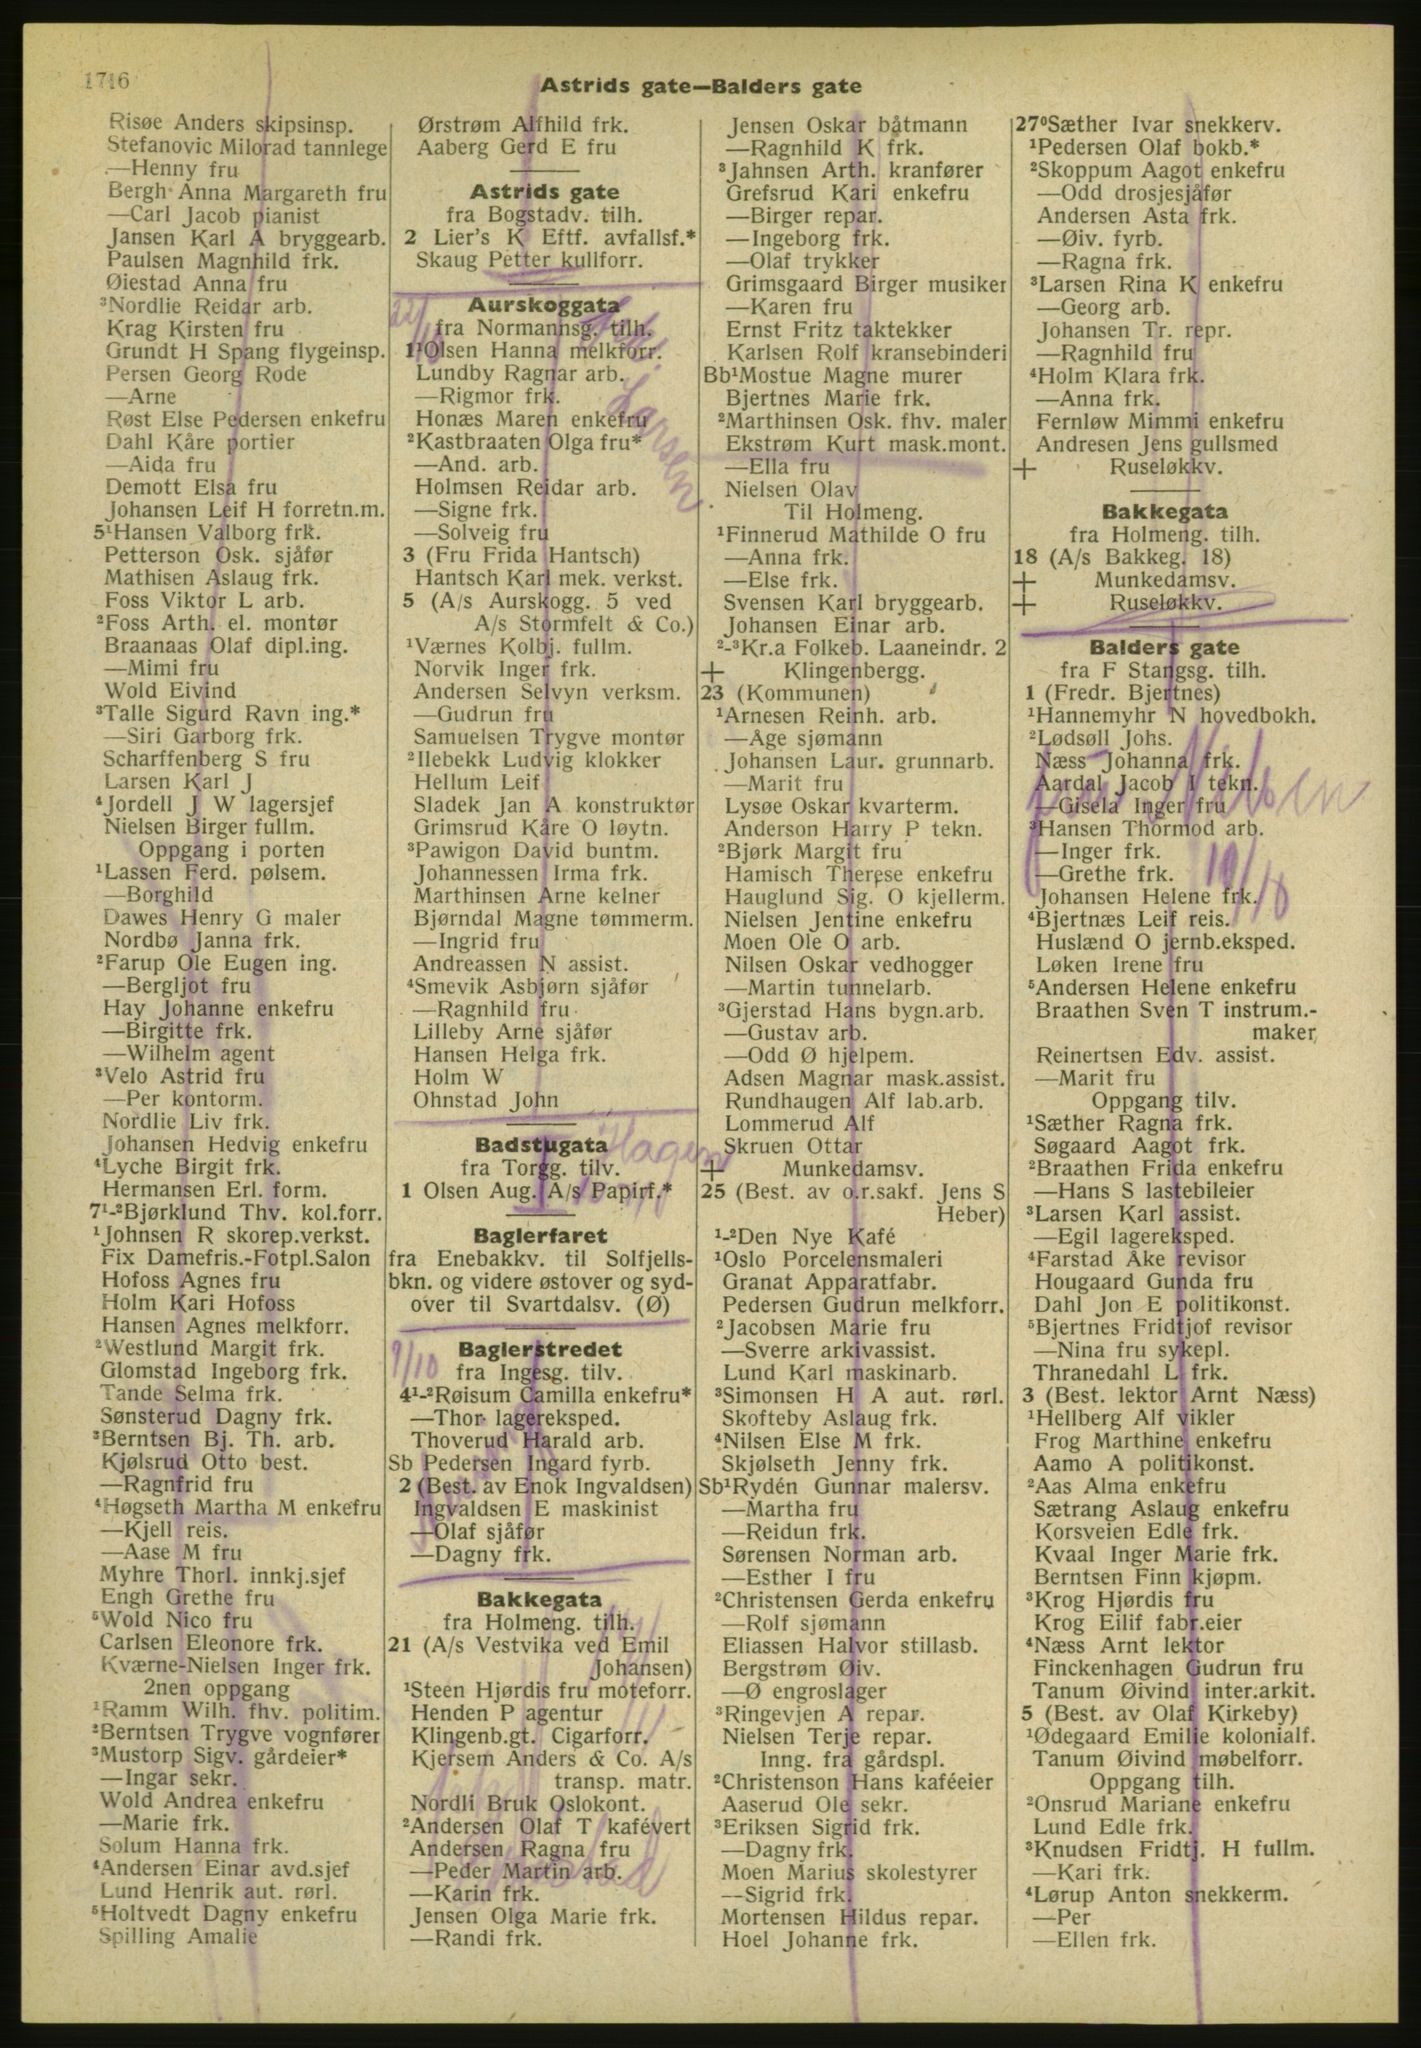 1716
Astrids gate—Balders gate
Risøe Anders skipsinsp.
Stefanovic Milorad tannlege
—Henny fru
Bergh Anna Margareth fru
—Carl Jacob pianist
Jansen Karl A bryggearb.
Paulsen Magnhild frk.
Øiestad Anna fru
³Nordlie Reidar arb.
Krag Kirsten fru
Grundt H Spang flygeinsp.
Persen Georg Rode
—Arne
Røst Else Pedersen enkefru
Dahl Kåre portier
—Aida fru
Demott Elsa fru
Johansen Leif H forretn.m.
5¹Hansen Valborg frk.
Petterson Osk. sjåfør
Mathisen Aslaug frk.
Foss Viktor L arb.
²Foss Arth. el. montør
Braanaas Olaf dipl.ing.
—Mimi fru
Wold Eivind
³Talle Sigurd Ravn ing.*
—Siri Garborg frk.
Scharffenberg S fru
Larsen Karl J
⁴Jordell J W lagersjef
Nielsen Birger fullm.
Oppgang i porten
¹Lassen Ferd. pølsem.
—Borghild
Dawes Henry G maler
Nordbø Janna frk.
²Farup Ole Eugen ing.
—Bergljot fru
Hay Johanne enkefru
—Birgitte frk.
—Wilhelm agent
³Velo Astrid fru
—Per kontorm.
Nordlie Liv frk.
Johansen Hedvig enkefru
⁴Lyche Birgit frk.
Hermansen Erl. form.
7¹-²Bjørklund Thv. kol.forr.
¹Johnsen R skorep.verkst.
Fix Damefris.-Fotpl.Salon
Hofoss Agnes fru
Holm Kari Hofoss
Hansen Agnes melkforr.
²Westlund Margit frk.
Glomstad Ingeborg frk.
Tande Selma frk.
Sønsterud Dagny frk.
³Berntsen Bj. Th. arb.
Kjølsrud Otto best.
—Ragnfrid fru
⁴Høgseth Martha M enkefru
—Kjell reis.
—Aase M fru
Myhre Thorl. innkj.sjef
Engh Grethe fru
⁵Wold Nico fru
Carlsen Eleonore frk.
Kværne-Nielsen Inger frk.
2nen oppgang
¹Ramm Wilh. fhv. politim.
²Berntsen Trygve vognfører
³Mustorp Sigv. gårdeier*
—Ingar sekr.
Wold Andrea enkefru
—Marie frk.
Solum Hanna frk.
⁴Andersen Einar avd.sjef
Lund Henrik aut. rørl.
⁵Holtvedt Dagny enkefru
Spilling Amalie
Ørstrøm Alfhild frk.
Aaberg Gerd E fru
Astrids gate
fra Bogstadv. tilh.
2 Lier's K Eftf. avfallsf.*
Skaug Petter kullforr.
Aurskoggata
fra Normannsg. tilh.
1¹Olsen Hanna melkforr.
Lundby Ragnar arb.
—Rigmor frk.
Larsen
Honæs Maren enkefru
²Kastbraaten Olga fru*
—And. arb.
Holmsen Reidar arb.
—Signe frk.
—Solveig fru
3 (Fru Frida Hantsch)
Hantsch Karl mek. verkst.
5 (A/s Aurskogg. 5 ved
A/s Stormfelt & Co.)
¹Værnes Kolbj. fullm.
Norvik Inger frk.
Andersen Selvyn verksm.
—Gudrun fru
Samuelsen Trygve montør
²Ilebekk Ludvig klokker
Hellum Leif
Sladek Jan A konstruktør
Grimsrud Kåre O løytn.
³Pawigon David buntm.
Johannessen Irma frk.
Marthinsen Arne kelner
Bjørndal Magne tømmerm.
—Ingrid fru
Andreassen N assist.
⁴Smevik Asbjørn sjåfør
—Ragnhild fru
Lilleby Arne sjåfør
Hansen Helga frk.
Holm W
Ohnstad John
Badstugata
Hagen
fra Torgg. tilv.
1 Olsen Aug. A/s Papirf.*
Baglerfaret
fra Enebakkv. til Solfjells-
bkn. og videre østover og syd-
over til Svartdalsv. (Ø)
Baglerstredet
9/10
fra Ingesg. tilv.
4¹-²Røisum Camilla enkefru*
—Thor lagereksped.
Thoverud Harald arb.
Sb Pedersen Ingard fyrb.
2 (Best. av Enok Ingvaldsen)
Ingvaldsen E maskinist
—Olaf sjåfør
—Dagny frk.
Bakkegata
fra Holmeng. tilh.
21 (A/s Vestvika ved Emil
Johansen)
¹Steen Hjørdis fru moteforr.
Henden P agentur
Klingenb.gt. Cigarforr.
Kjersem Anders & Co. A/s
transp. matr.
Nordli Bruk Oslokont.
²Andersen Olaf T kafévert
Andersen Ragna fru
—Peder Martin arb.
—Karin frk.
Jensen Olga Marie frk.
—Randi frk.
Jensen Oskar båtmann
—Ragnhild K frk.
³Jahnsen Arth. kranfører
Grefsrud Kari enkefru
—Birger repar.
—Ingeborg frk.
—Olaf trykker
Grimsgaard Birger musiker
—Karen fru
Ernst Fritz taktekker
Karlsen Rolf kransebinderi
Bb¹Mostue Magne murer
Bjertnes Marie frk.
²Marthinsen Osk. fhv. maler
Ekstrøm Kurt mask.mont.
—Ella fru
Nielsen Olav
Til Holmeng.
¹Finnerud Mathilde O fru
—Anna frk.
—Else frk.
Svensen Karl bryggearb.
Johansen Einar arb.
²-³Kr.a Folkeb. Laaneindr. 2
+ Klingenbergg.
23 (Kommunen)
¹Arnesen Reinh. arb.
—Åge sjømann
Johansen Laur. grunnarb.
—Marit fru
Lysøe Oskar kvarterm.
Anderson Harry P tekn.
²Bjørk Margit fru
Hamisch Therese enkefru
Hauglund Sig. O kjellerm.
Nielsen Jentine enkefru
Moen Ole O arb.
Nilsen Oskar vedhogger
—Martin tunnelarb.
³Gjerstad Hans bygn.arb.
—Gustav arb.
—Odd Ø hjelpem.
Adsen Magnar mask.assist.
Rundhaugen Alf lab.arb.
Lommerud Alf
Skruen Ottar
+ Munkedamsv.
25 (Best. av o.r.sakf. Jens S
Heber)
¹-²Den Nye Kafé
¹Oslo Porcelensmaleri
Granat Apparatfabr.
Pedersen Gudrun melkforr.
²Jacobsen Marie fru
—Sverre arkivassist.
Lund Karl maskinarb.
³Simonsen H A aut. rørl.
Skofteby Aslaug frk.
⁴Nilsen Else M frk.
Skjølseth Jenny frk.
Sb¹Rydén Gunnar malersv.
—Martha fru
—Reidun frk.
Sørensen Norman arb.
—Esther I fru
²Christensen Gerda enkefru
—Rolf sjømann
Eliassen Halvor stillasb.
Bergstrøm Øiv.
—Ø engroslager
³Ringevjen A repar.
Nielsen Terje repar.
Inng. fra gårdspl.
²Christenson Hans kaféeier
Aaserud Ole sekr.
³Eriksen Sigrid frk.
—Dagny frk.
Moen Marius skolestyrer
—Sigrid frk.
Mortensen Hildus repar.
Hoel Johanne frk.
27⁰Sæther Ivar snekkerv.
¹Pedersen Olaf bokb.*
²Skoppum Aagot enkefru
—Odd drosjesjåfør
Andersen Asta frk.
—Øiv. fyrb.
—Ragna frk.
³Larsen Rina K enkefru
—Georg arb.
Johansen Tr. repr.
—Ragnhild fru
⁴Holm Klara frk.
—Anna frk.
Fernløw Mimmi enkefru
Andresen Jens gullsmed
+ Ruseløkkv.
Bakkegata
fra Holmeng. tilh.
18 (A/s Bakkeg. 18)
+ Munkedamsv.
+ Ruseløkkv.
Balders gate
fra F Stangsg. tilh.
1 (Fredr. Bjertnes)
¹Hannemyhr N hovedbokh.
²Lødsøll Johs.
Næss Johanna frk.
Aardal Jacob I tekn.
—Gisela Inger fru
Nilsen
³Hansen Thormod arb.
—Inger frk.
—Grethe frk.
19/10
Johansen Helene frk.
⁴Bjertnæs Leif reis.
Huslænd O jernb.eksped.
Løken Irene fru
⁵Andersen Helene enkefru
Braathen Sven T instrum.-
maker
Reinertsen Edv. assist.
—Marit fru
Oppgang tilv.
¹Sæther Ragna frk.
Søgaard Aagot frk.
²Braathen Frida enkefru
—Hans S lastebileier
³Larsen Karl assist.
—Egil lagereksped.
⁴Farstad Åke revisor
Hougaard Gunda fru
Dahl Jon E politikonst.
⁵Bjertnes Fridtjof revisor
—Nina fru sykepl.
Thranedahl L frk.
3 (Best. lektor Arnt Næss)
¹Hellberg Alf vikler
Frog Marthine enkefru
Aamo A politikonst.
²Aas Alma enkefru
Sætrang Aslaug enkefru
Korsveien Edle frk.
Kvaal Inger Marie frk.
Berntsen Finn kjøpm.
³Krog Hjørdis fru
Krog Eilif fabr.eier
⁴Næss Arnt lektor
Finckenhagen Gudrun fru
Tanum Øivind inter.arkit.
5 (Best. av Olaf Kirkeby)
¹Ødegaard Emilie kolonialf.
Tanum Øivind møbelforr.
Oppgang tilh.
²Onsrud Mariane enkefru
Lund Edle frk.
³Knudsen Fridtj. H fullm.
—Kari frk.
⁴Lørup Anton snekkerm.
—Per
—Ellen frk.